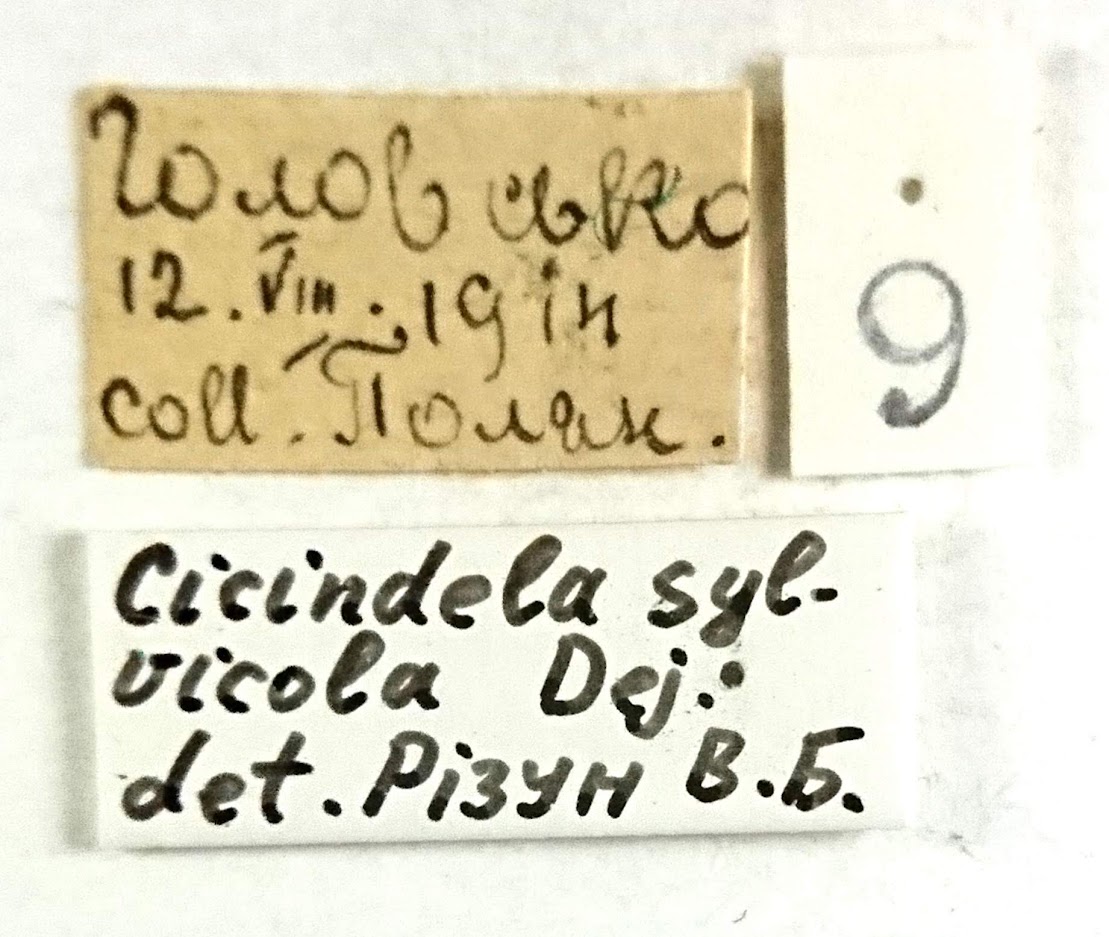 Головсько
12.VIII.1914
coll. Полян.
9
Cicindela syl-
vicola Dej.
det. Різун В.Б.